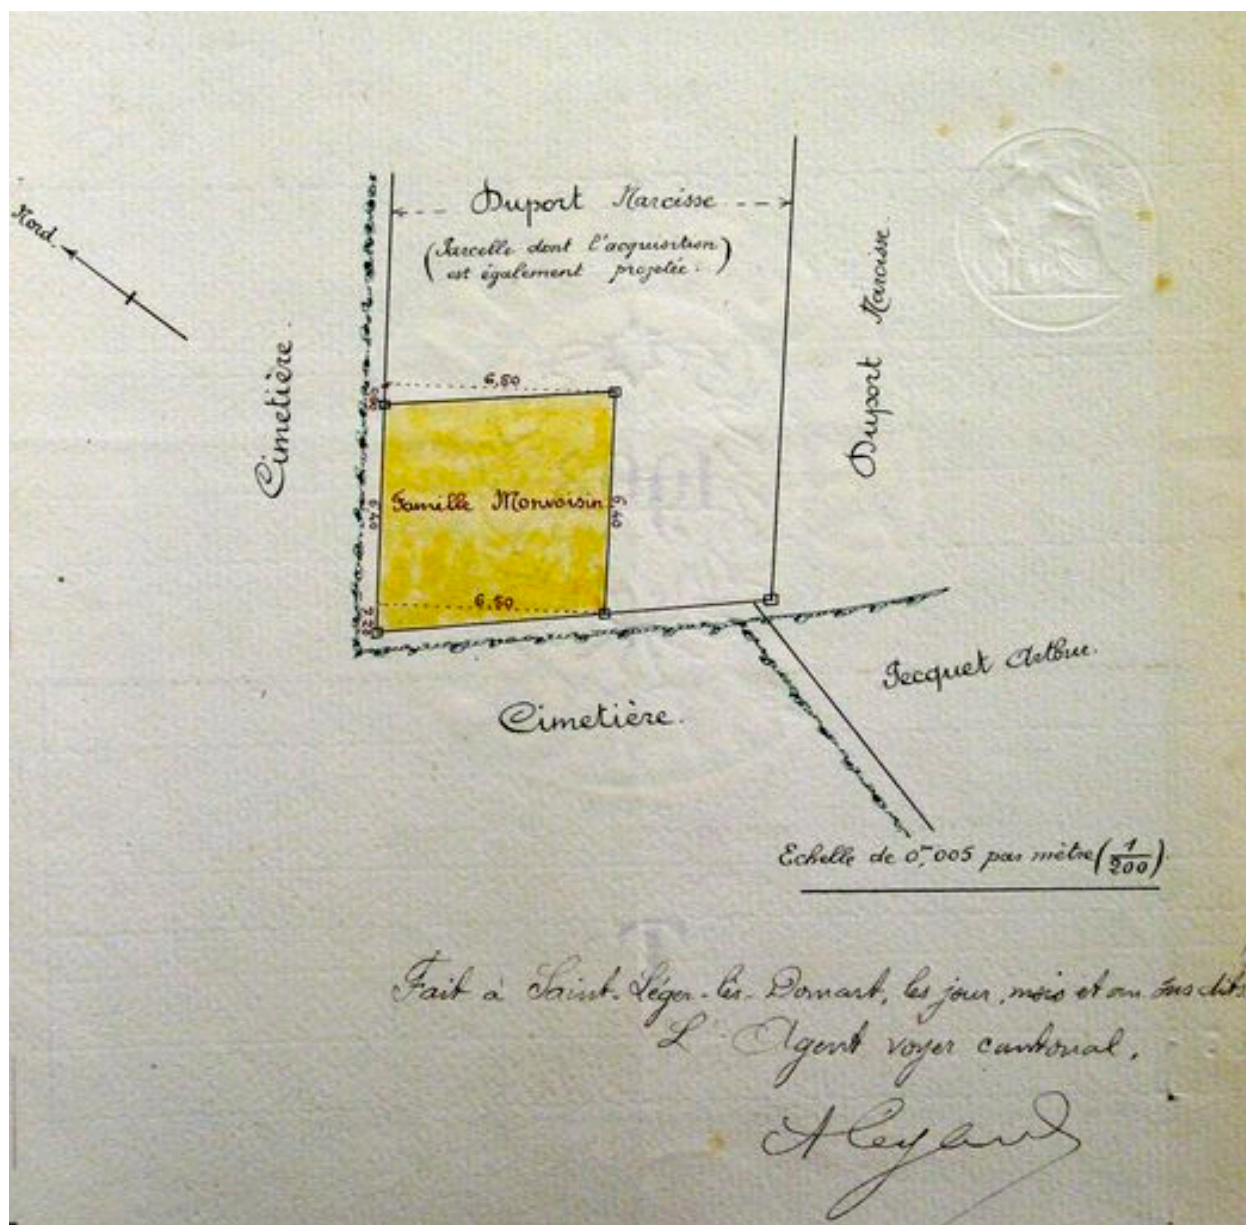 Nord.
Duport Narcisse
(Parcelle dont l'acquisition
est également projetée.)
Cimetière.
Duport Narcisse.
6,50
6,40
Famille Monvoisin
6,40
6,50
Cimetière.
Jecquet Arthur.
Echelle de 0,m005 par mètre (1/200)
Fait à Saint-Léger-lès-Domart, les jour, mois et an susdits
L'Agent voyer cantonal,